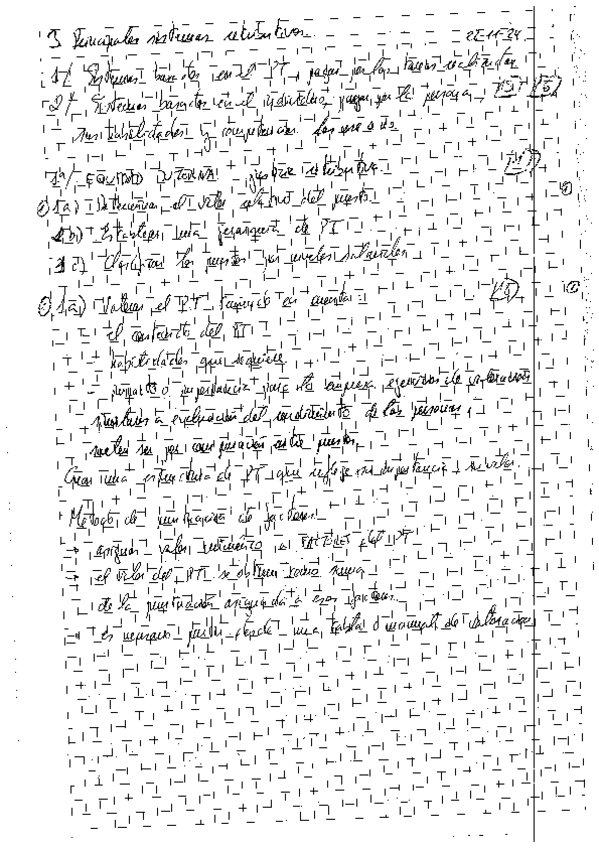 3 Principales sistemas retributivos 22-11-24
1º/ Sistemas basados en el PT, pagar por las tareas realizadas
2º/ Sistemas basados en el individuo, pagar por la persona,
sus habilidades y competencias
1º/ EQUIDAD INTERNA: justicia retributiva
1a) Determinar el valor relativo del puesto
1b) Establecer una jerarquía de PT
1c) Clasificar los puestos por niveles salariales
1,a) Valorar el PT teniendo en cuenta:
- el contenido del PT
- habilidades que requiere
- impacto o importancia para la empresa, ejercicios de valoración
similares a evaluación del rendimiento de las personas,
suelen ser por comparación entre puestos
Crear una estructura de PT que refleje su importancia
Método de puntuación de factores
→ asignar valor numérico a FACTORES del PT
→ el valor del PT se obtiene como suma
de la puntuación asignada a esos factores
→ es necesario partir desde una tabla o manual de valoración